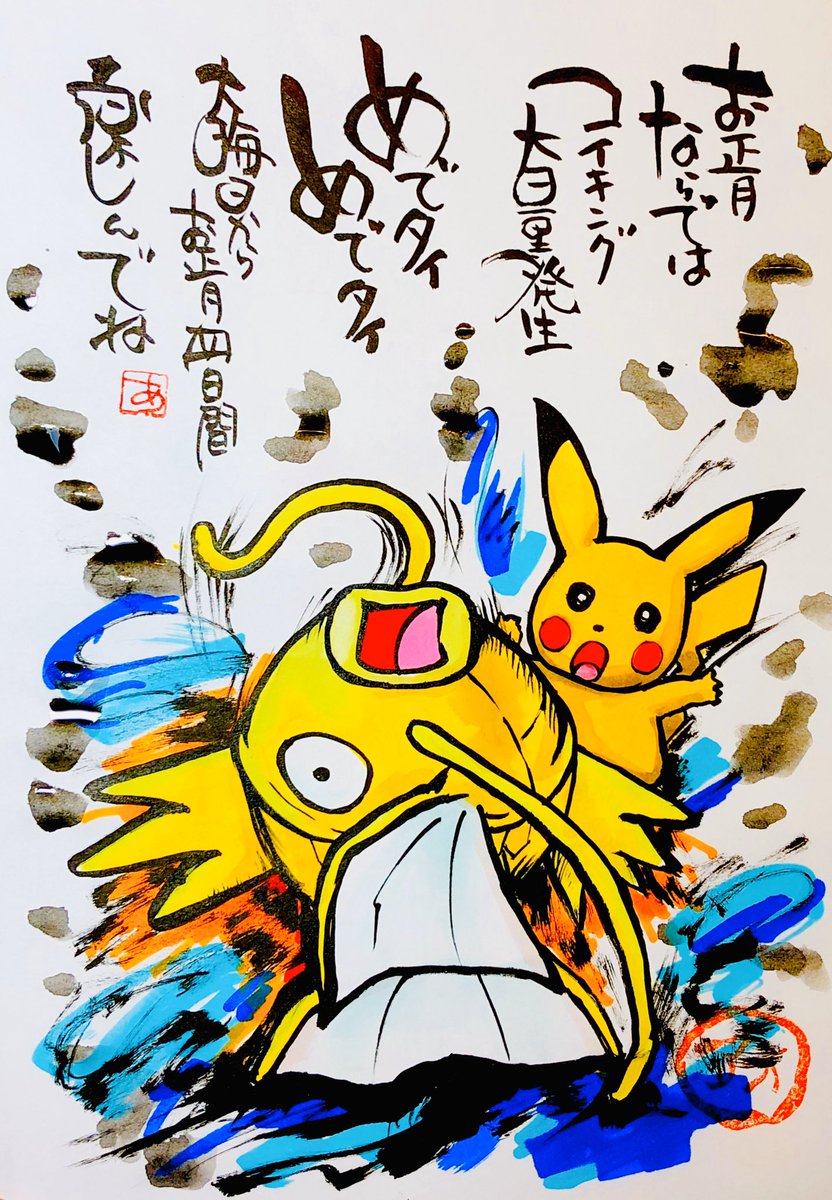 お正月
ならでは
コイキング
大量発生
めでタイ
めでタイ
大晦日から
お正月四日間
楽しんでね
あ